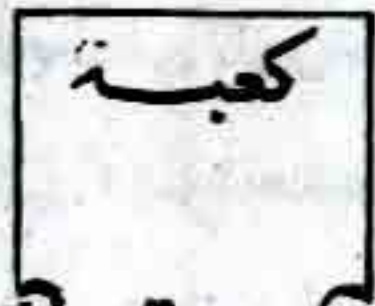 كعبة